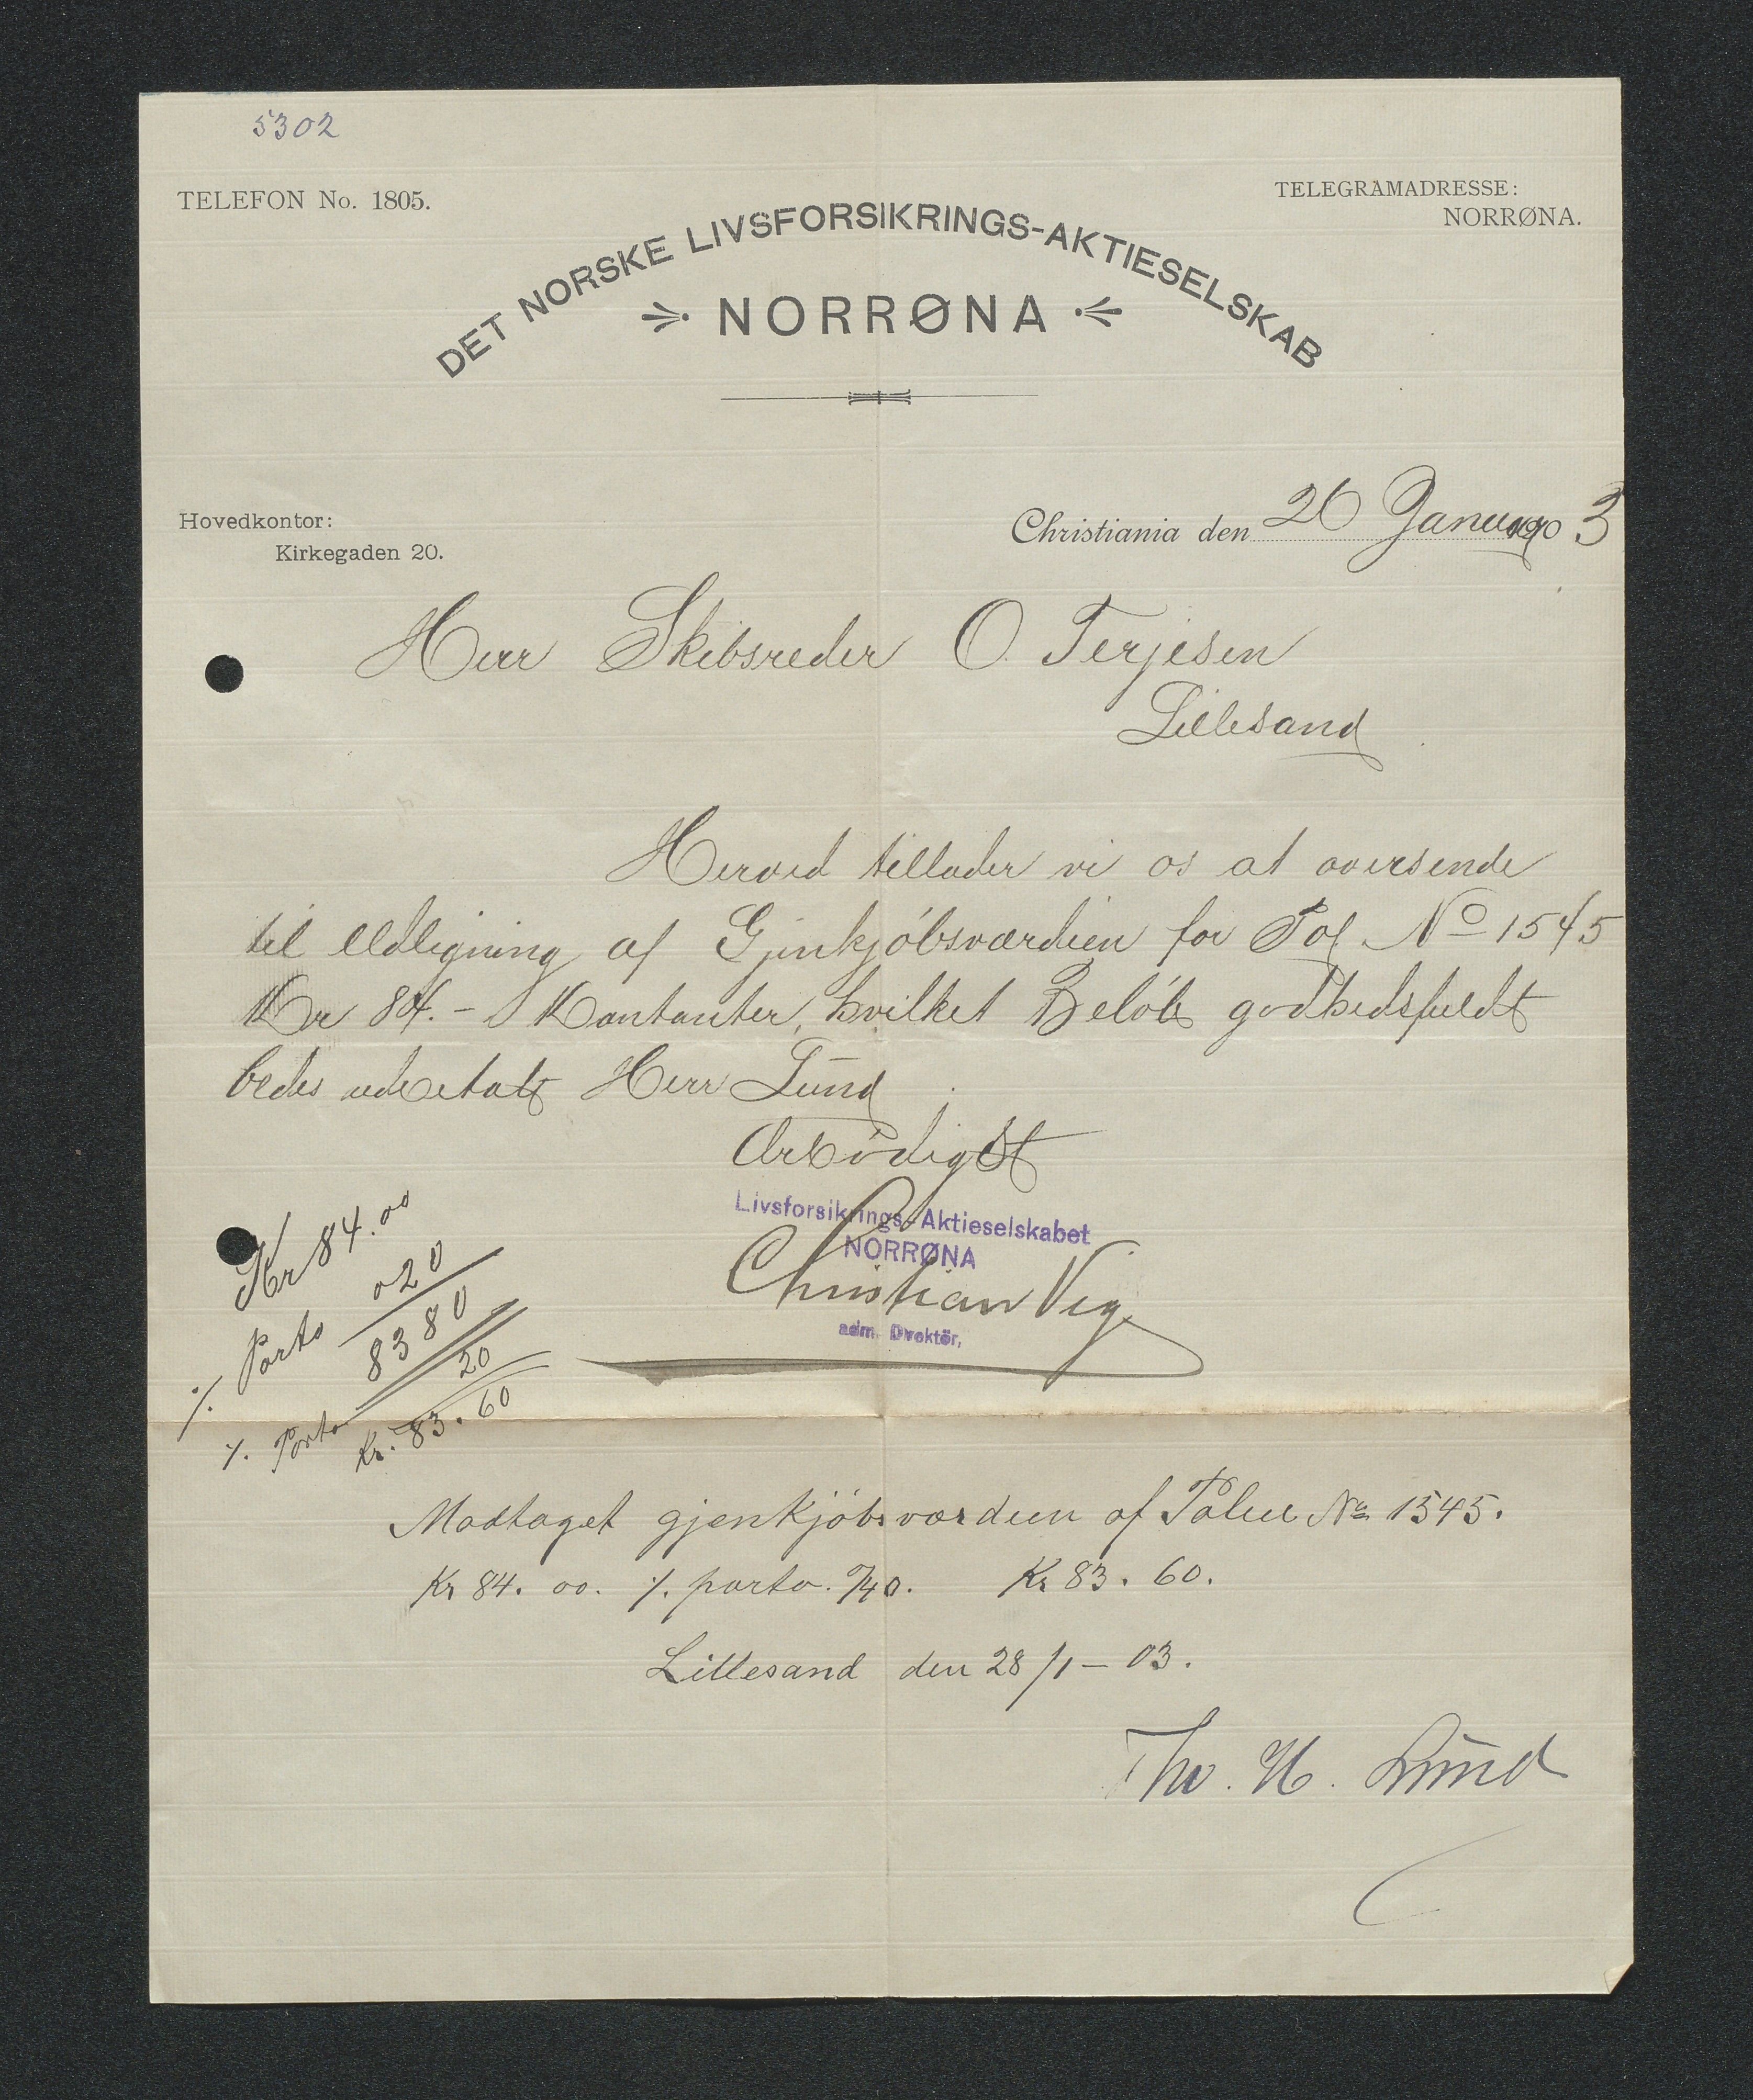 5302
TELEFON No. 1805.
TELEGRAMADRESSE:
NORRØNA.
DET NORSKE LIVSFORSIKRINGS-AKTIESELSKAB
NORRØNA
Hovedkontor:
Kirkegaden 20.
Christiania den 26 Januar 1903
Herr Skibsreder O. Terjesen
Lillesand
Herved tillader vi os at oversende
til Udligning af Gjenkjöbsværdien for Pol No 1545
Kr 84.- Kontanter, hvilket Belöb godhedsfuldt
bedes udbetalt Herr Lund
Ærbödigst
Livsforsikrings-Aktieselskabet
NORRØNA
Christian Vig
adm. Direktör,
Kr 84.00
% Porto 020
8380
% Porto 20
Kr. 83.60
Modtaget gjenkjöbsværdien af Police No 1545.
Kr 84.00. % porto. %40. Kr 83.60.
Lillesand den 28/1-03.
Thv. H. Lund